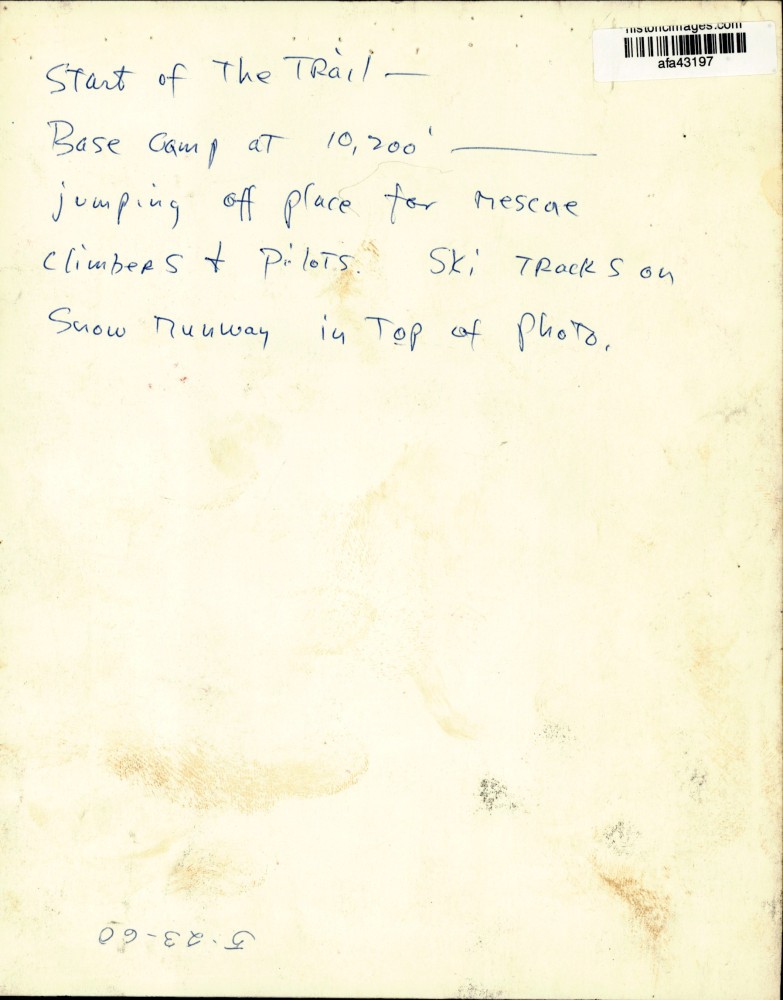 historicimages.com
afa43197
Start of The TRail —
Base Camp at 10,200' ———
jumping off place for rescue
climbeRS & PilotS. Ski TRackS on
Snow runway in Top of Photo.
5-23-60